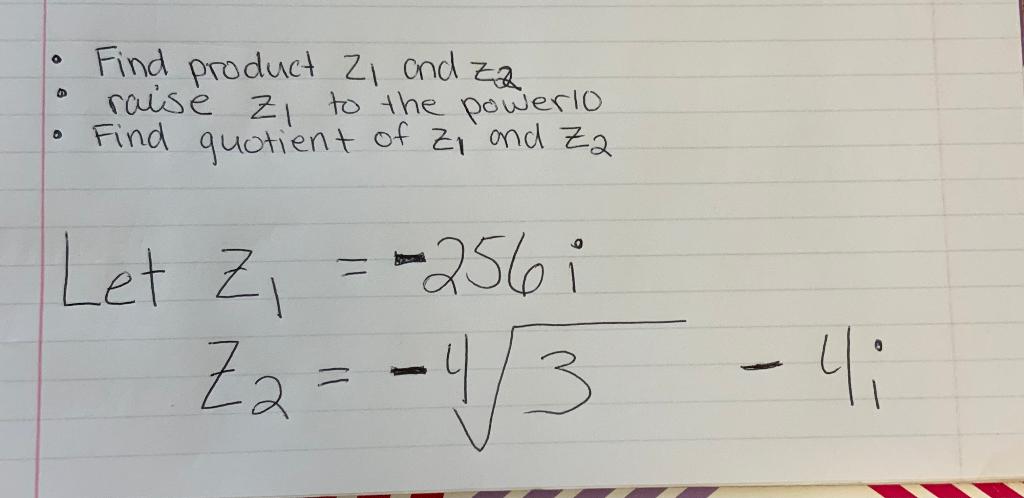 • Find product z₁ and z₂
• raise z₁ to the power10
• Find quotient of z₁ and z₂
Let z₁ = -256i
z₂ = -4√3 - 4i